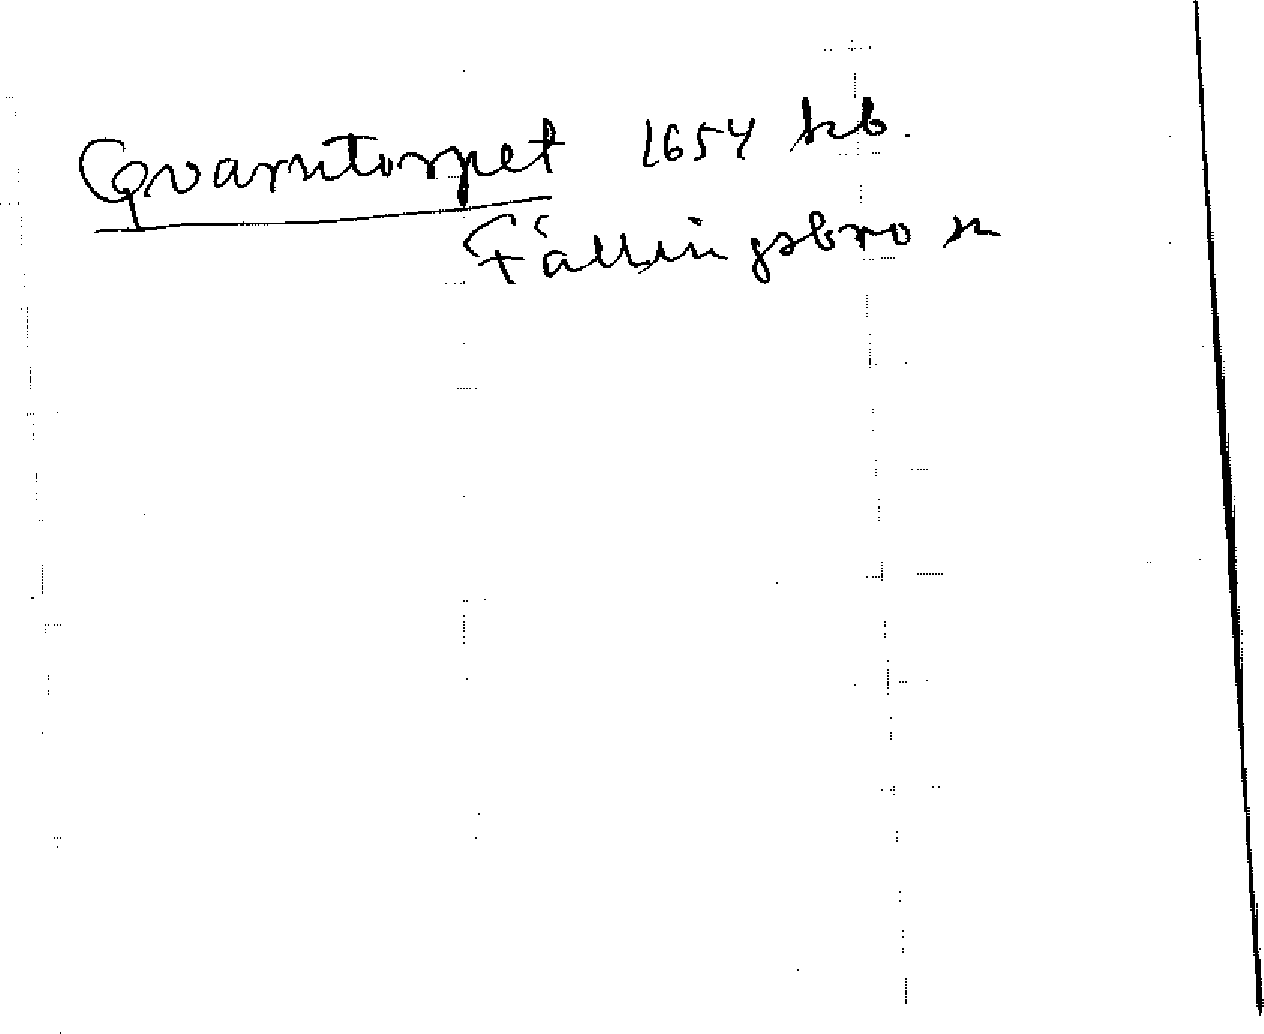 Qvarntorpet 1654 kb.
Fällingsbro sn